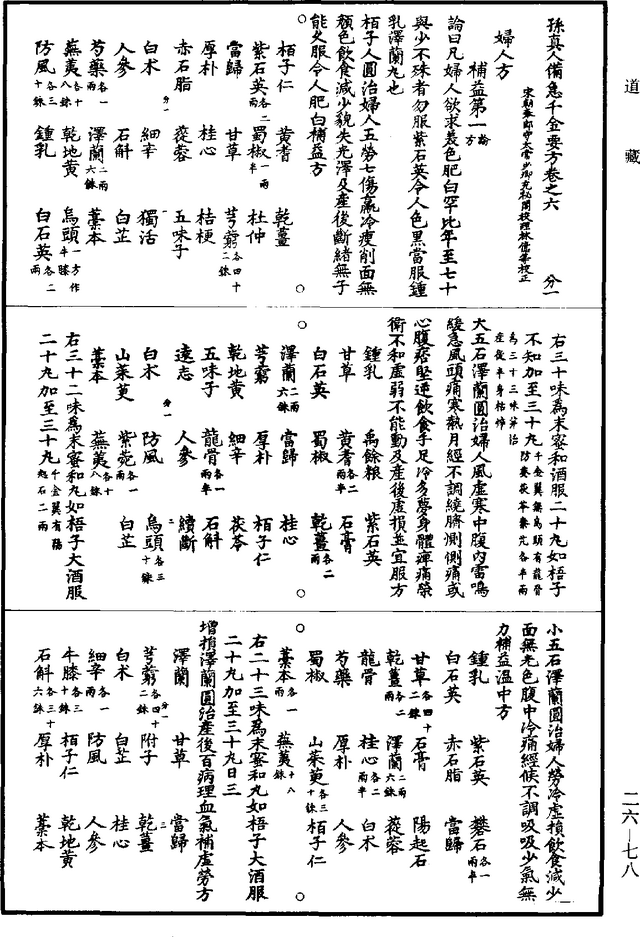 道藏
孫真人備急千金要方卷之六 分一
宋朝奉郎守太常少卿充秘閣校理林億等校正
婦人方
補益第一 論 方
論曰凡婦人欲求美色肥白罕比年至七十
與少不殊者勿服紫石英令人色黑當服鍾
乳澤蘭丸也
栢子人圓治婦人五勞七傷羸冷瘦削面無
顏色飲食減少貌失光澤及產後斷緒無子
能久服令人肥白補益方
栢子仁 黃耆 乾薑
紫石英各二兩 蜀椒一兩半 杜仲
當歸 甘草 芎藭各四十二銖
厚朴 桂心 桔梗
赤石脂 蓯蓉 五味子
分一
白术 細辛 獨活
人參 石斛 白芷
芍藥各一兩 澤蘭二兩六銖 藁本
蕪荑各十八銖 乾地黃 烏頭一方作牛膝
防風各三十銖 鍾乳 白石英各二兩
右三十味為末蜜和酒服二十丸如梧子
不知加至三十丸千金翼無烏頭有龍骨防葵茯苓秦艽各半兩
為三十三味并治產後半身枯悴
大五石澤蘭圓治婦人風虛寒中腹內雷鳴
緩急風頭痛寒熱月經不調繞臍惻惻痛或
心腹痞堅逆飲食手足冷多夢身體痺痛榮
衛不和虛弱不能動及產後虛損並宜服方
鍾乳 禹餘粮 紫石英
甘草 黃耆各二兩半 石膏
白石英 蜀椒 乾薑各二兩
澤蘭二兩六銖 當歸 桂心
芎藭 厚朴 栢子仁
乾地黃 細辛 茯苓
五味子 龍骨各一兩半 石斛
遠志 人參 續斷
分一
白术 防風 烏頭各三十銖
山茱萸 紫菀各一兩 白芷
藁本 蕪荑各十八銖
右三十二味為末蜜和丸如梧子大酒服
二十丸加至三十丸千金翼有陽起石二兩
小五石澤蘭圓治婦人勞冷虛損飲食減少
面無光色腹中冷痛經候不調吸吸少氣無
力補益溫中方
鍾乳 紫石英 礬石各一兩半
白石英 赤石脂 當歸
甘草各四十二銖 石膏 陽起石
乾薑各二兩 澤蘭二兩六銖 蓯蓉
龍骨 桂心各二兩半 白术
芍藥 厚朴 人參
蜀椒 山茱萸各三十銖 栢子仁
藁本各一兩 蕪荑十八銖
右二十三味為末蜜和丸如梧子大酒服
二十丸加至三十丸日三
增損澤蘭圓治產後百病理血氣補虛勞方
澤蘭 甘草 當歸
芎藭各四十二銖 附子 乾薑
分一
白术 白芷 桂心
細辛各一兩 防風 人參
牛膝各三十銖 栢子仁 乾地黃
石斛各三十六銖 厚朴 藁本
二六—七八